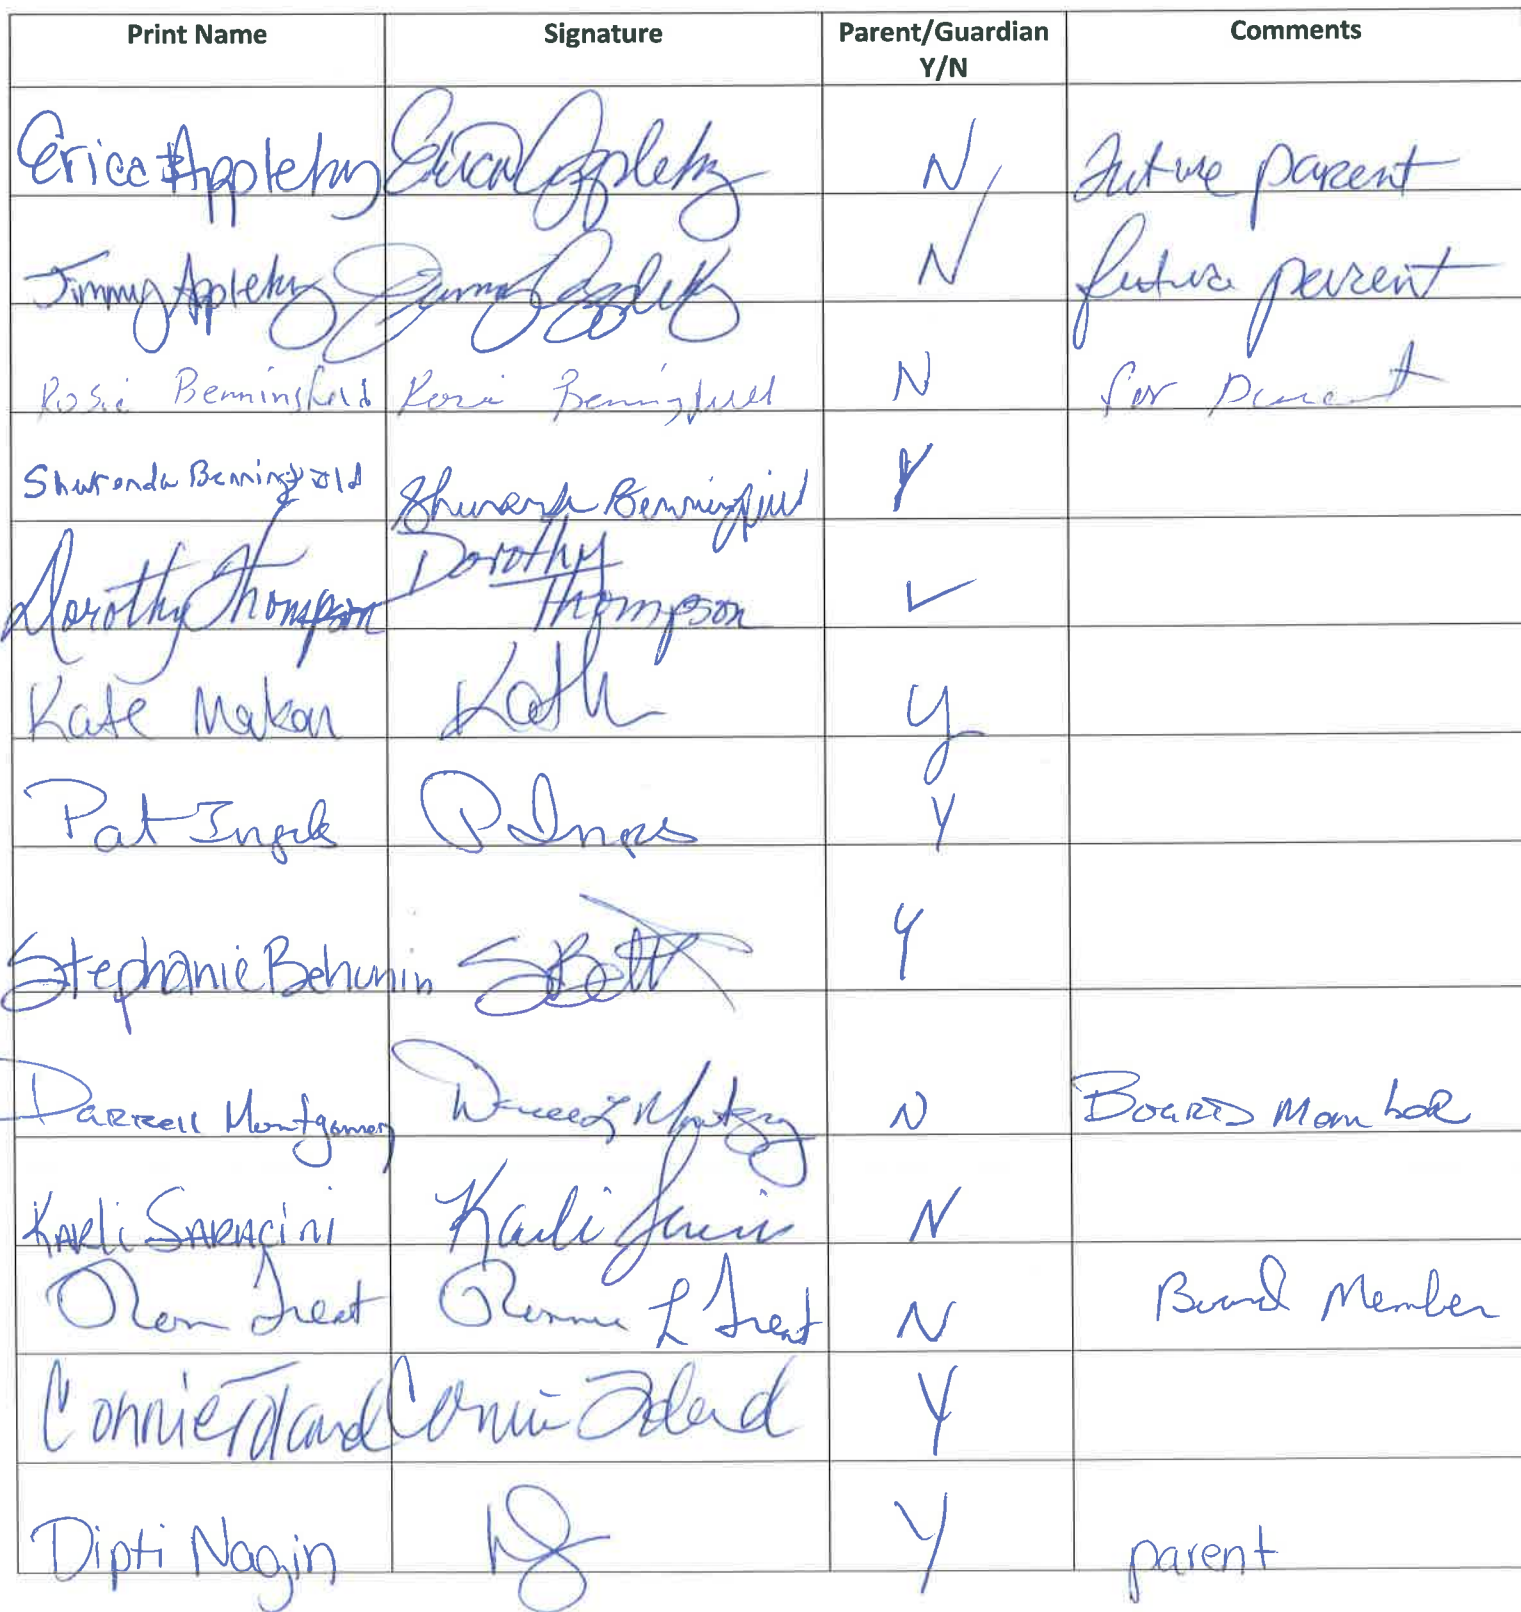 Print Name Signature Parent/Guardian Y/N Comments
Erica Appleby Erica Appleby N future parent
Jimmy Appleby Jimmy Appleby N future parent
Rosie Benningfield Rosie Benningfield N for parent
Shuronda Benningfield Shuronda Benningfield Y
Dorothy Thompson Dorothy Thompson ✓
Kate Makar Kath Y
Pat Ingels P Y
Stephanie Behunin Y
Darrell Montgomery N Board Member
Karli Saracini Karli N
Ron Treat Ronnie L Treat N Board Member
Connie Toland Connie Toland Y
Dipti Nagin Y parent